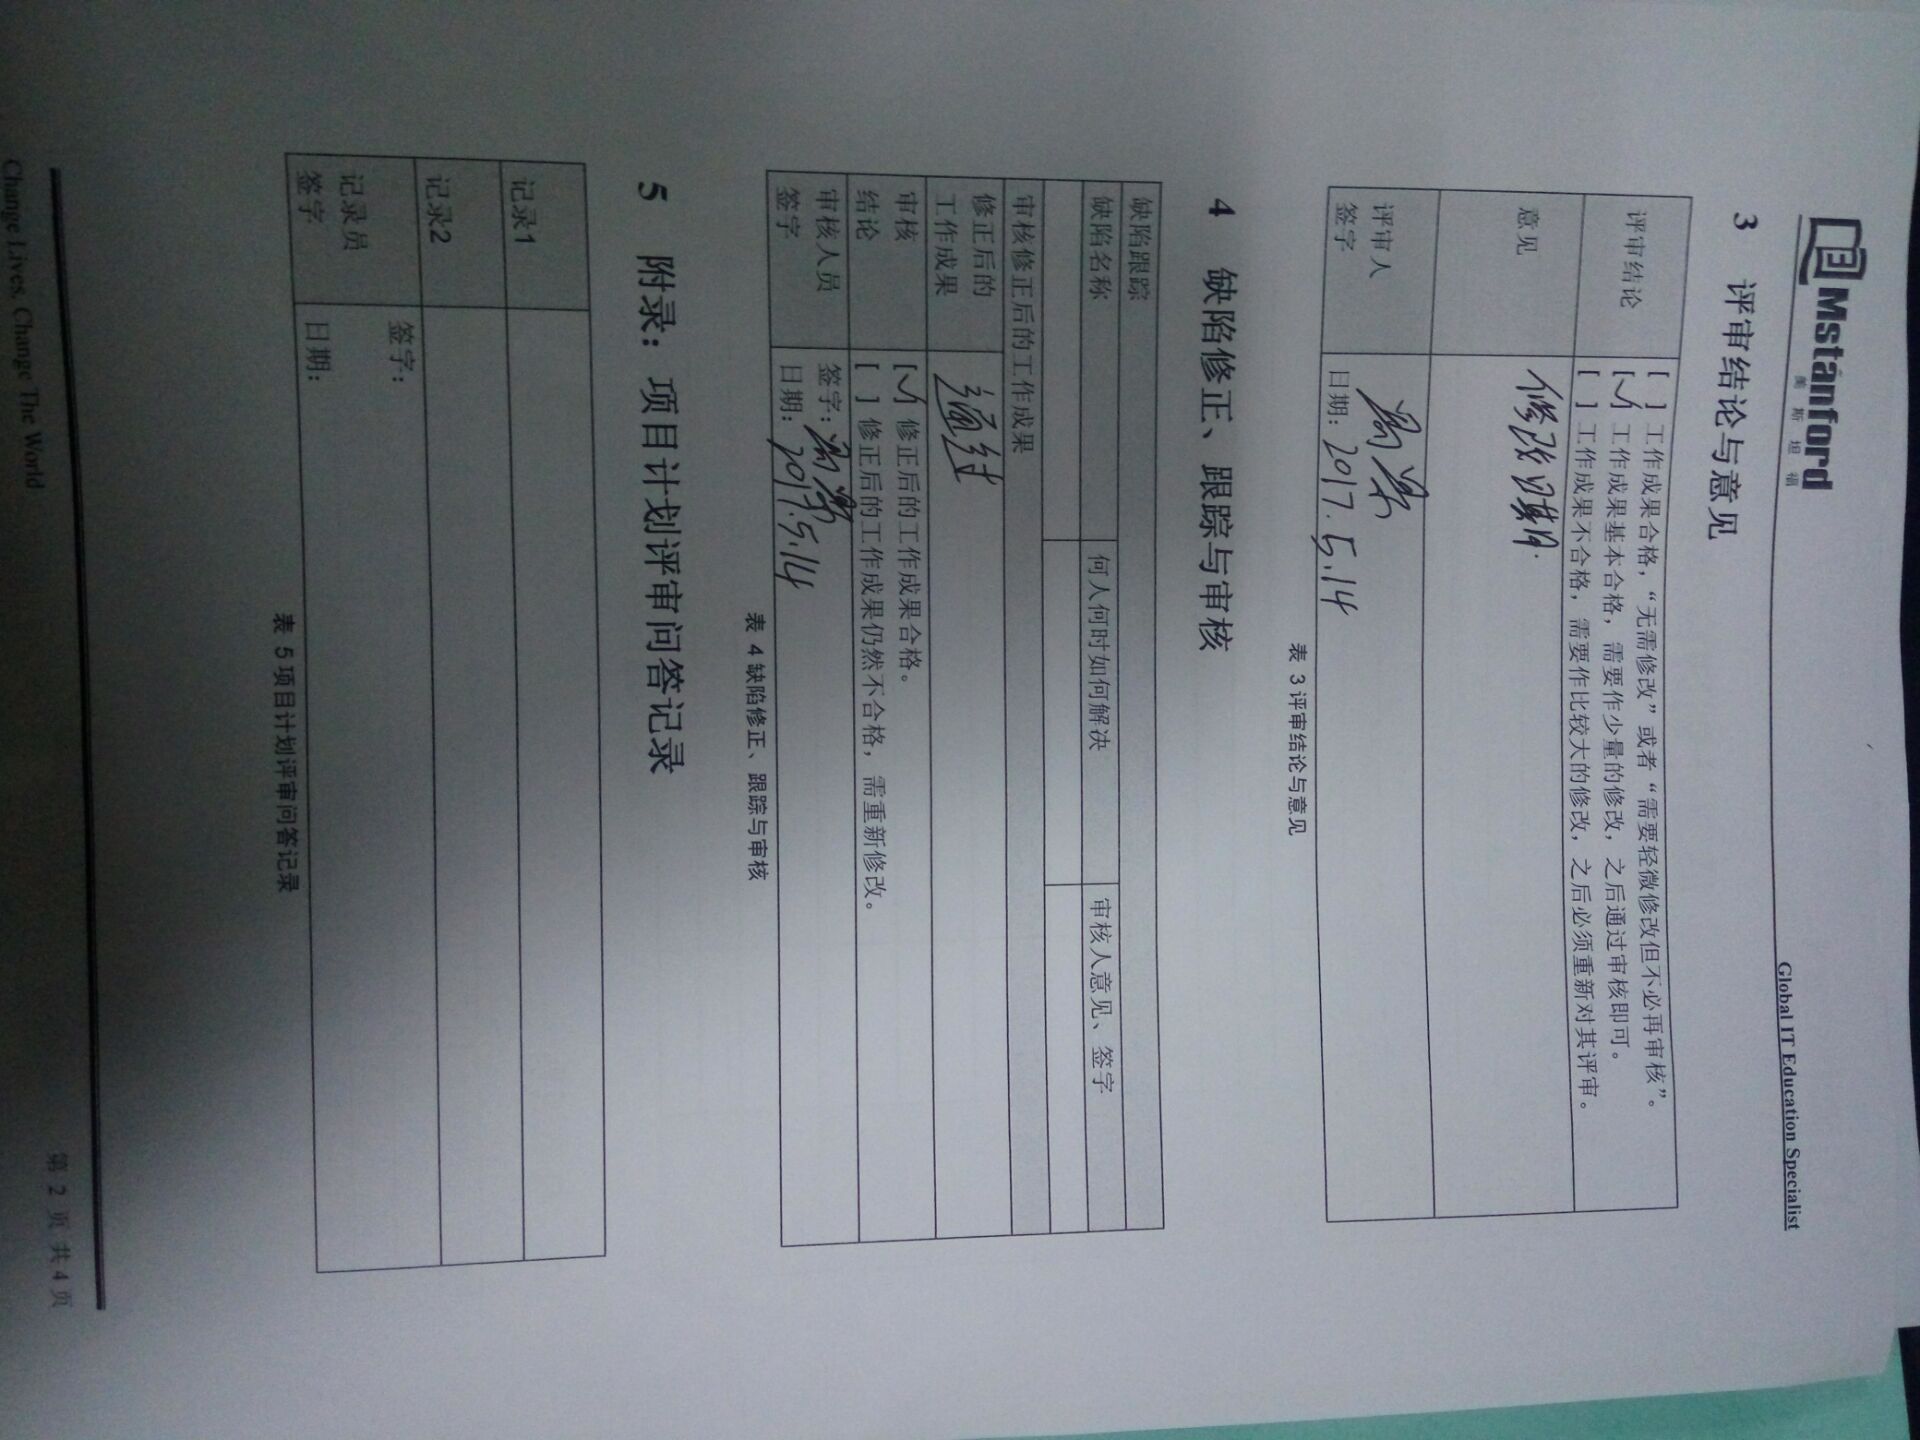 Mstanford
美斯坦福
Global IT Education Specialist
3 评审结论与意见
评审结论
[ ] 工作成果合格，“无需修改”或者“需要轻微修改但不必再审核”。
[✓] 工作成果基本合格，需要作少量的修改，之后通过审核即可。
[ ] 工作成果不合格，需要作比较大的修改，之后必须重新对其评审。
意见
修改日期
评审人
签字
日期：2017.5.14
表 3 评审结论与意见
4 缺陷修正、跟踪与审核
缺陷跟踪
缺陷名称 何人何时如何解决 审核人意见、签字
审核修正后的工作成果
修正后的
工作成果
通过
审核
结论
[✓] 修正后的工作成果合格。
[ ] 修正后的工作成果仍然不合格，需重新修改。
审核人员
签字
签字：
日期：2017.5.14
表 4 缺陷修正、跟踪与审核
5 附录：项目计划评审问答记录
记录1
记录2
记录员
签字
签字：
日期：
表 5 项目计划评审问答记录
第 2 页 共 4 页
Change Lives, Change The World